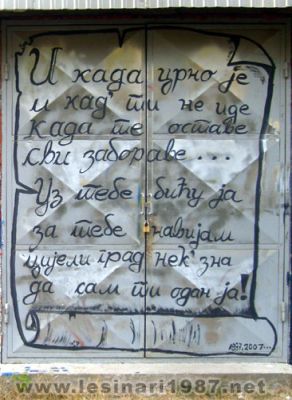 И када црно је
и кад' ти не иде
када те оставе
сви забораве ...
Уз тебе бићу ја
за тебе навијам
цијели град нек' зна
да сам ти одан ја!
2007...
www.lesinari1987.net